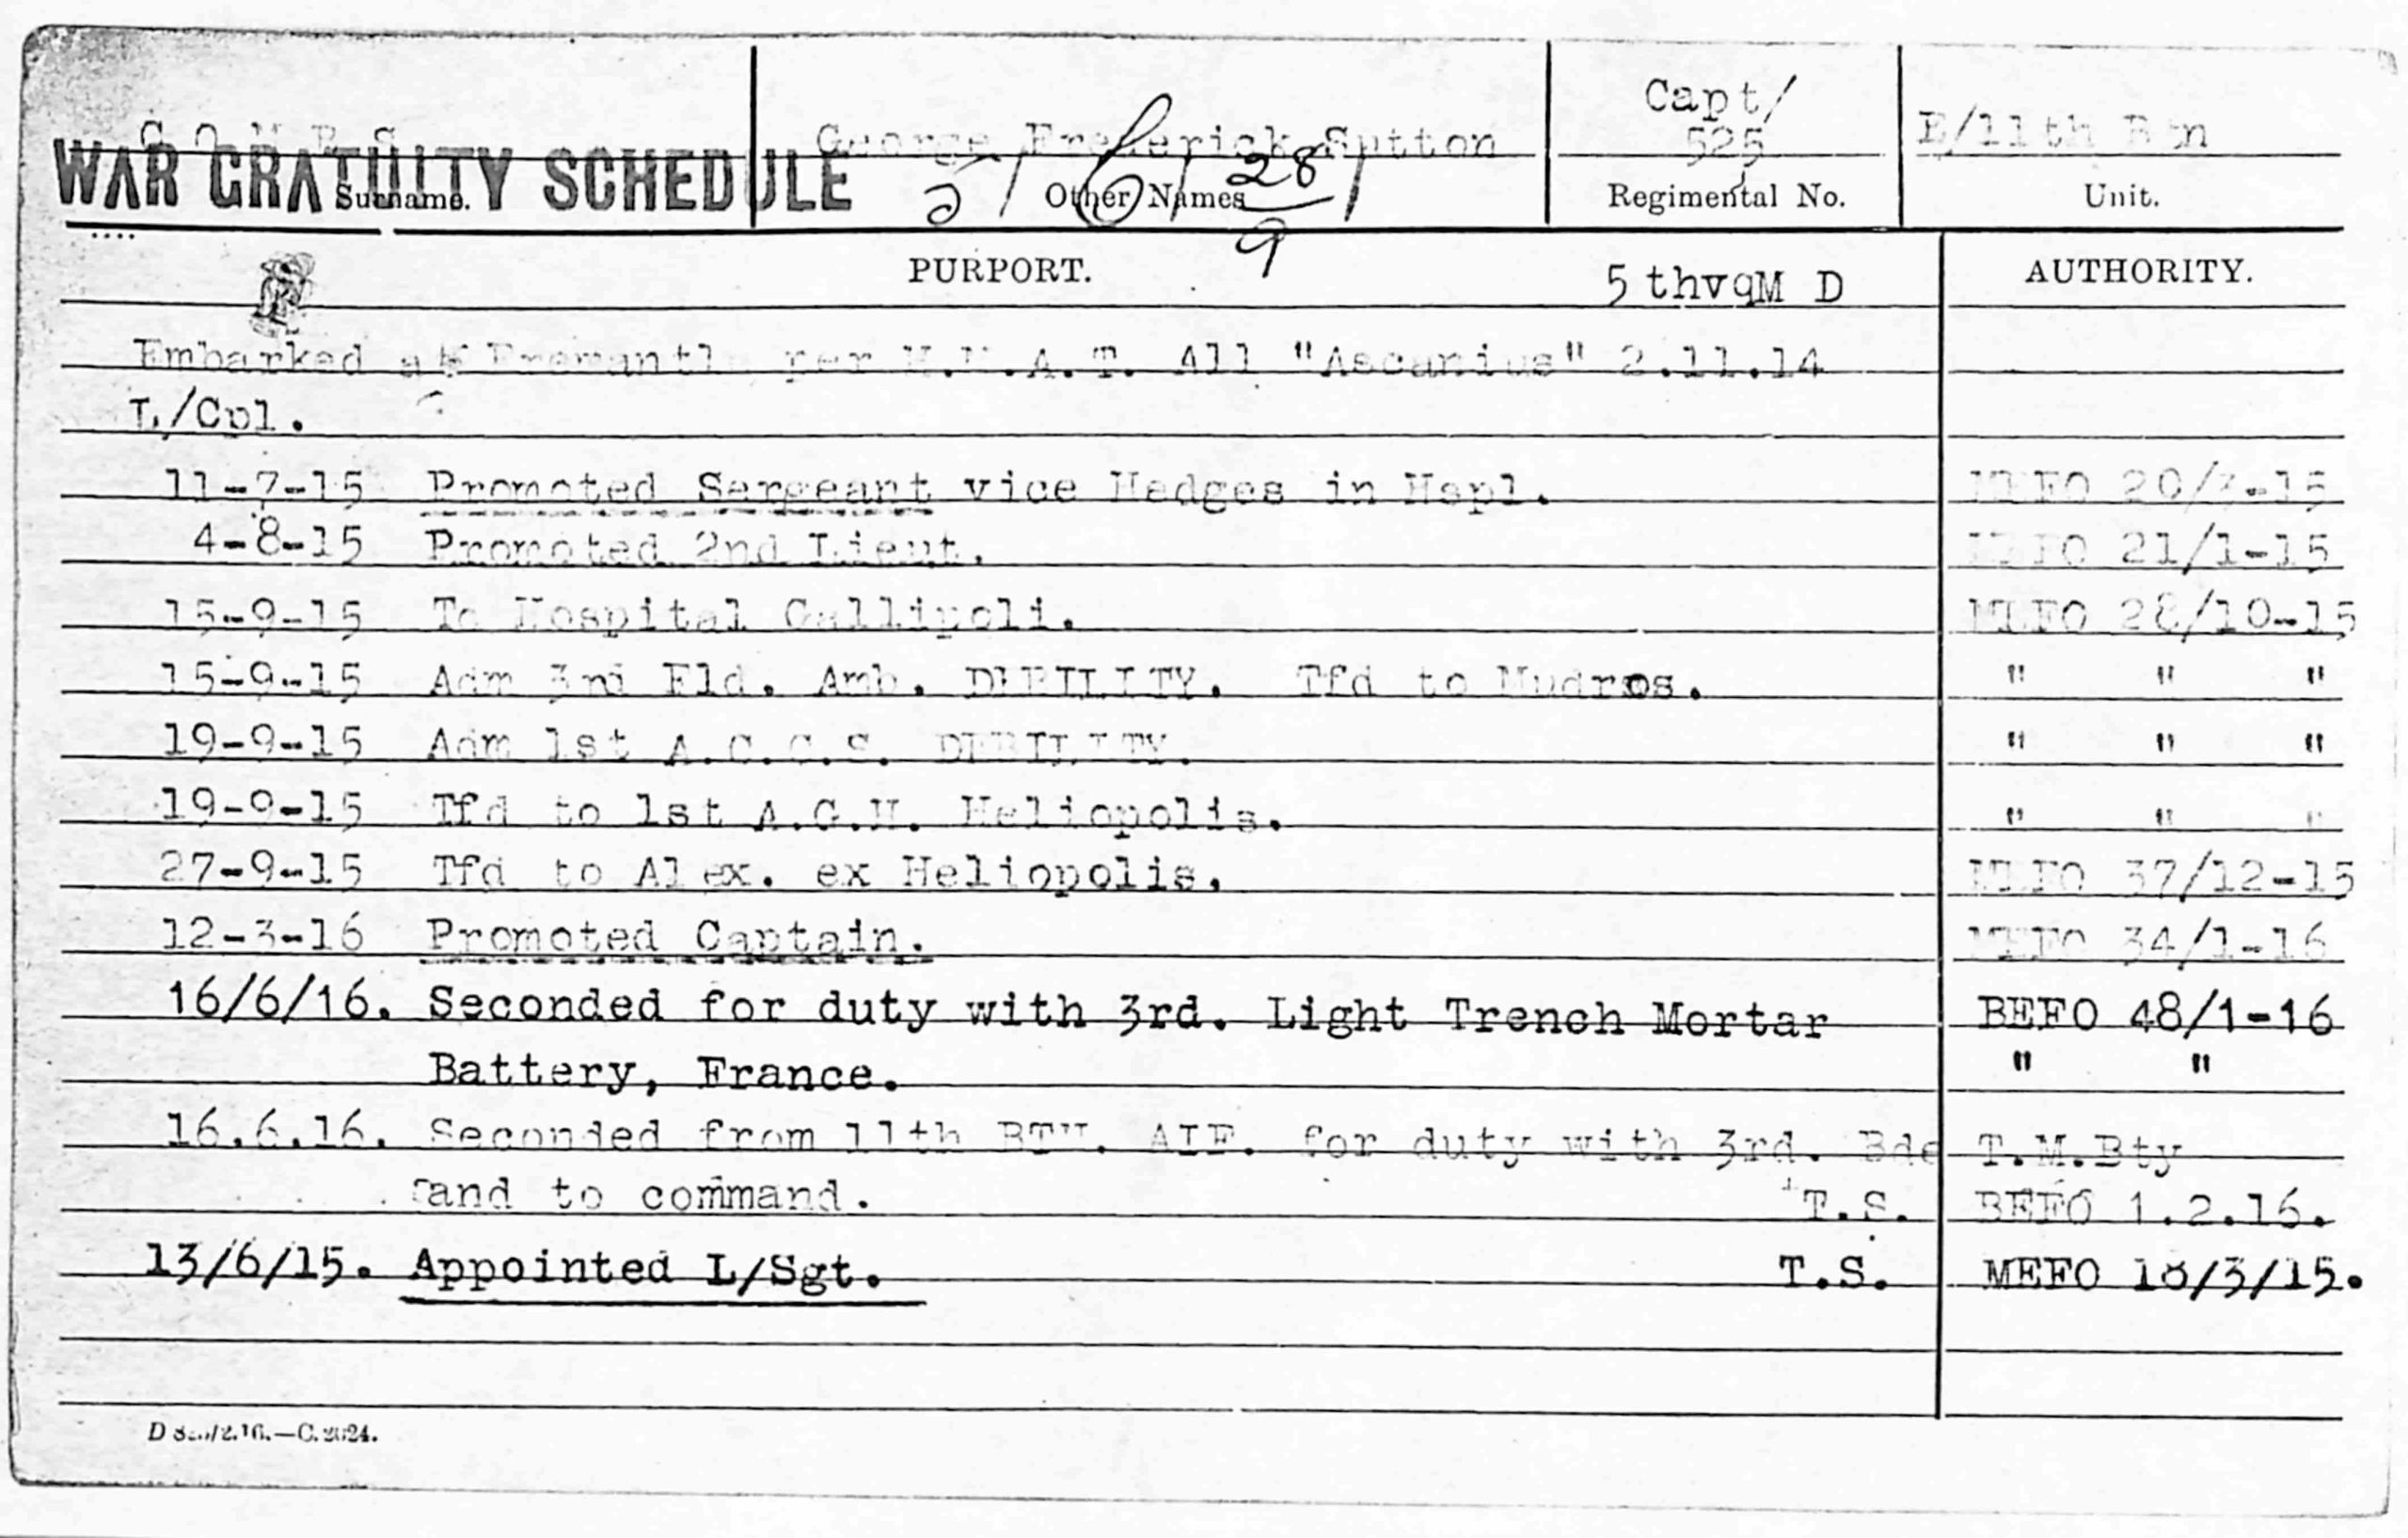 Capt/
COMBS George Frederick Sutton 525 E/11th Bn
WAR GRATUITY SCHEDULE
Surname. Other Names Regimental No. Unit.
28
9
PURPORT. 5thvqM D AUTHORITY.
Embarked at Fremantle per H.M.A.T. All "Ascanius" 2.11.14
L/Cpl.
11-7-15 Promoted Sergeant vice Hedges in Hspl. MEFO 20/3-15
4-8-15 Promoted 2nd Lieut. MEFO 21/1-15
15-9-15 To Hospital Gallipoli. MEFO 28/10-15
15-9-15 Adm 3rd Fld. Amb. DEBILITY. Tfd to Mudros. " " "
19-9-15 Adm 1st A.C.C.S. DEBILITY. " " "
19-9-15 Tfd to 1st A.G.H. Heliopolis. " " "
27-9-15 Tfd to Alex. ex Heliopolis. MEFO 37/12-15
12-3-16 Promoted Captain. MEFO 34/1-16
16/6/16. Seconded for duty with 3rd. Light Trench Mortar BEFO 48/1-16
Battery, France. " "
16.6.16. Seconded from 11th BTN. AIF. for duty with 3rd. Bde T.M.Bty
and to command. T.S. BEFO 1.2.16.
13/6/15. Appointed L/Sgt. T.S. MEFO 18/3/15.